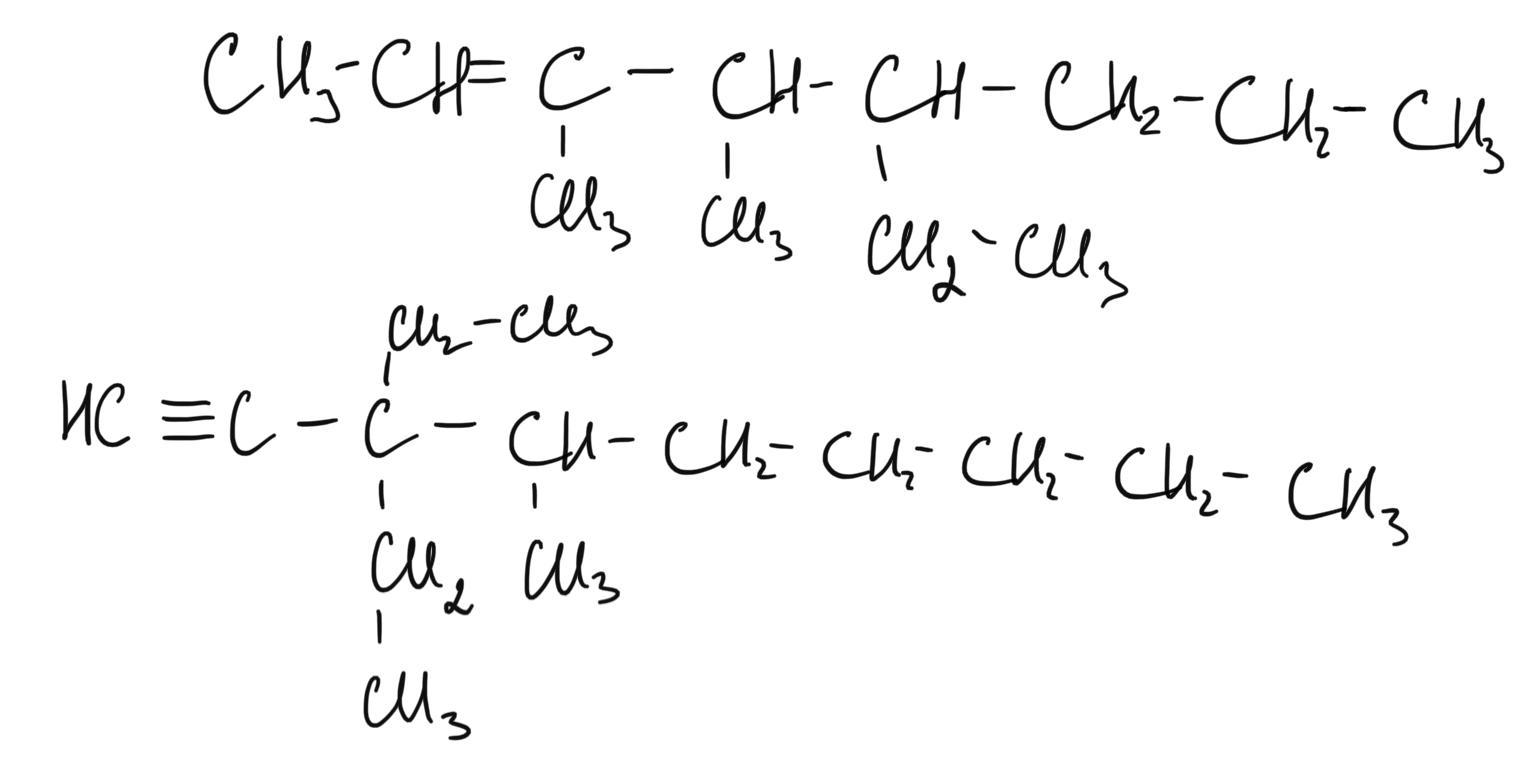 CH₃-CH=C-CH-CH-CH₂-CH₂-CH₃
CH₃ CH₃ CH₂-CH₃
CH₂-CH₃
HC≡C-C-CH-CH₂-CH₂-CH₂-CH₂-CH₃
CH₂ CH₃
CH₃